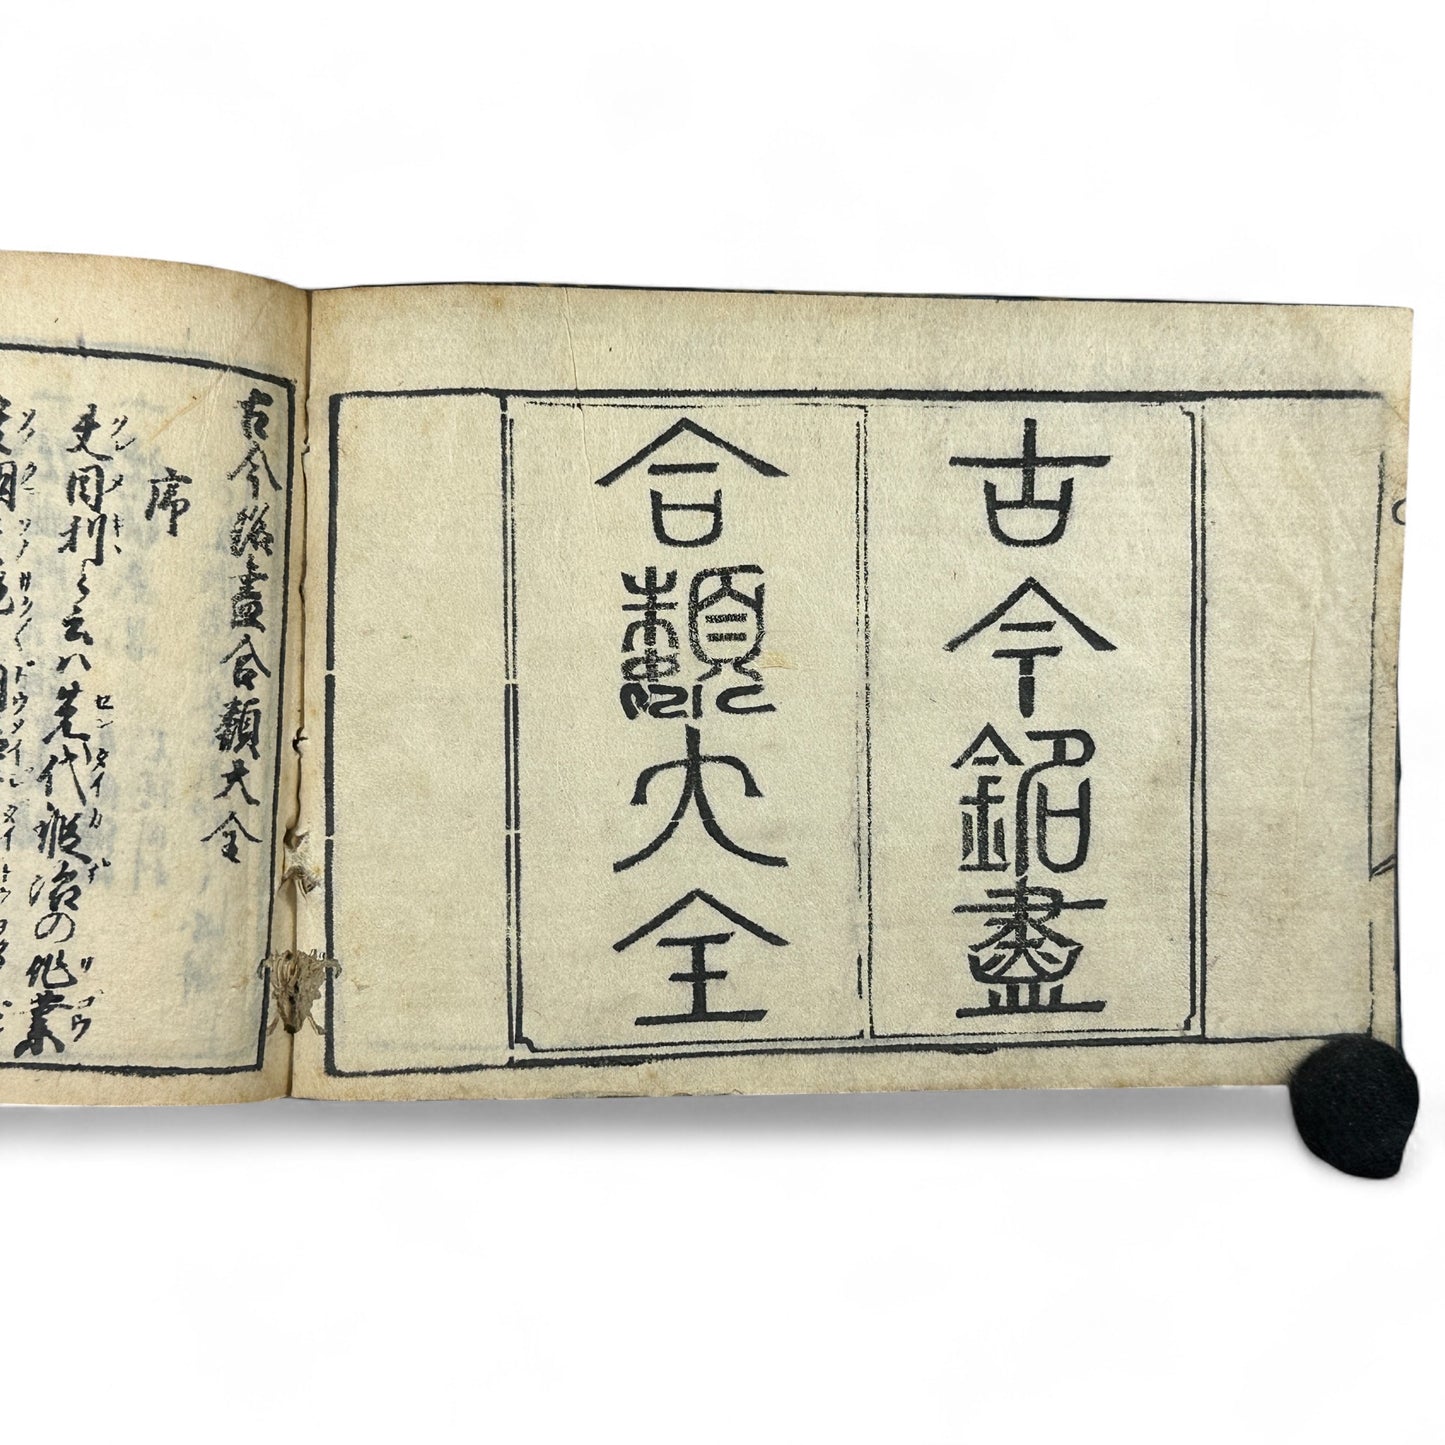 古今銘盡
合類大全
古今銘盡合類大全
序
夫目利と云ハ先代鍜冶の作業